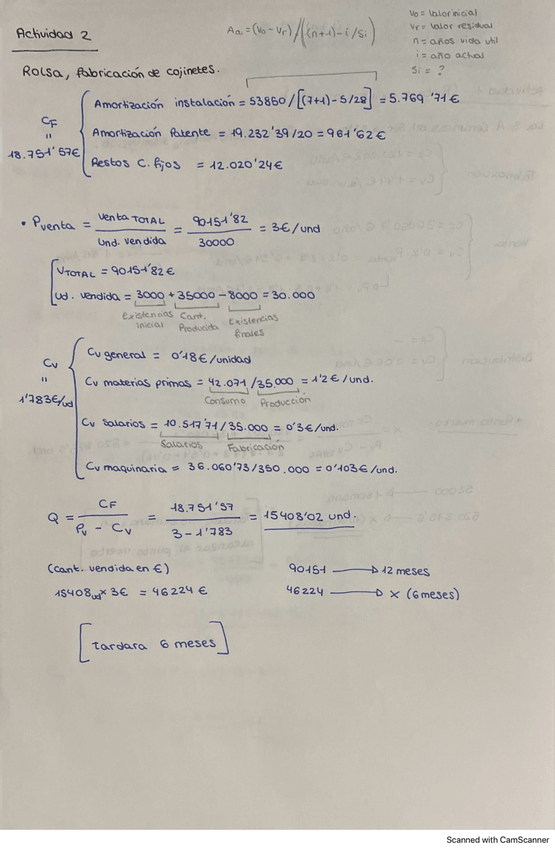 Actividad 2
Aa = (Vo - Vr) / ((n+1) - i / Si)
Vo = Valor inicial
Vr = Valor residual
n = años vida util
i = año actual
Si = ?
ROLSA, Fabricación de cojinetes.
CF
"
18.751'57€
Amortización instalación = 53850 / [(7+1) - 5/28] = 5.769'71€
Amortización Patente = 19.232'39/20 = 961'62€
Restos C. Fijos = 12.020'24€
• Pventa = Venta TOTAL / Und. vendida = 90151'82 / 30000 = 3€/und
VTOTAL = 90151'82€
Ud. vendida = 3000 + 35000 - 8000 = 30.000
Existencias Inicial
Cant. Producida
Existencias finales
Cv
"
1'783€/ud
Cv general = 0'18€/unidad
Cv materias primas = 42.071/35.000 = 1'2€/und.
Consumo Producción
Cv Salarios = 10.517'71/35.000 = 0'3€/und.
Salarios Fabricación
Cv maquinaria = 36.060'73/350.000 = 0'103€/und.
Q = CF / Pv - Cv = 18.751'57 / 3 - 1'783 = 15408'02 und.
(Cant. vendida en €)
15408ud x 3€ = 46224€
90151 → 12 meses
46224 → x (6 meses)
[tardara 6 meses]
Scanned with CamScanner